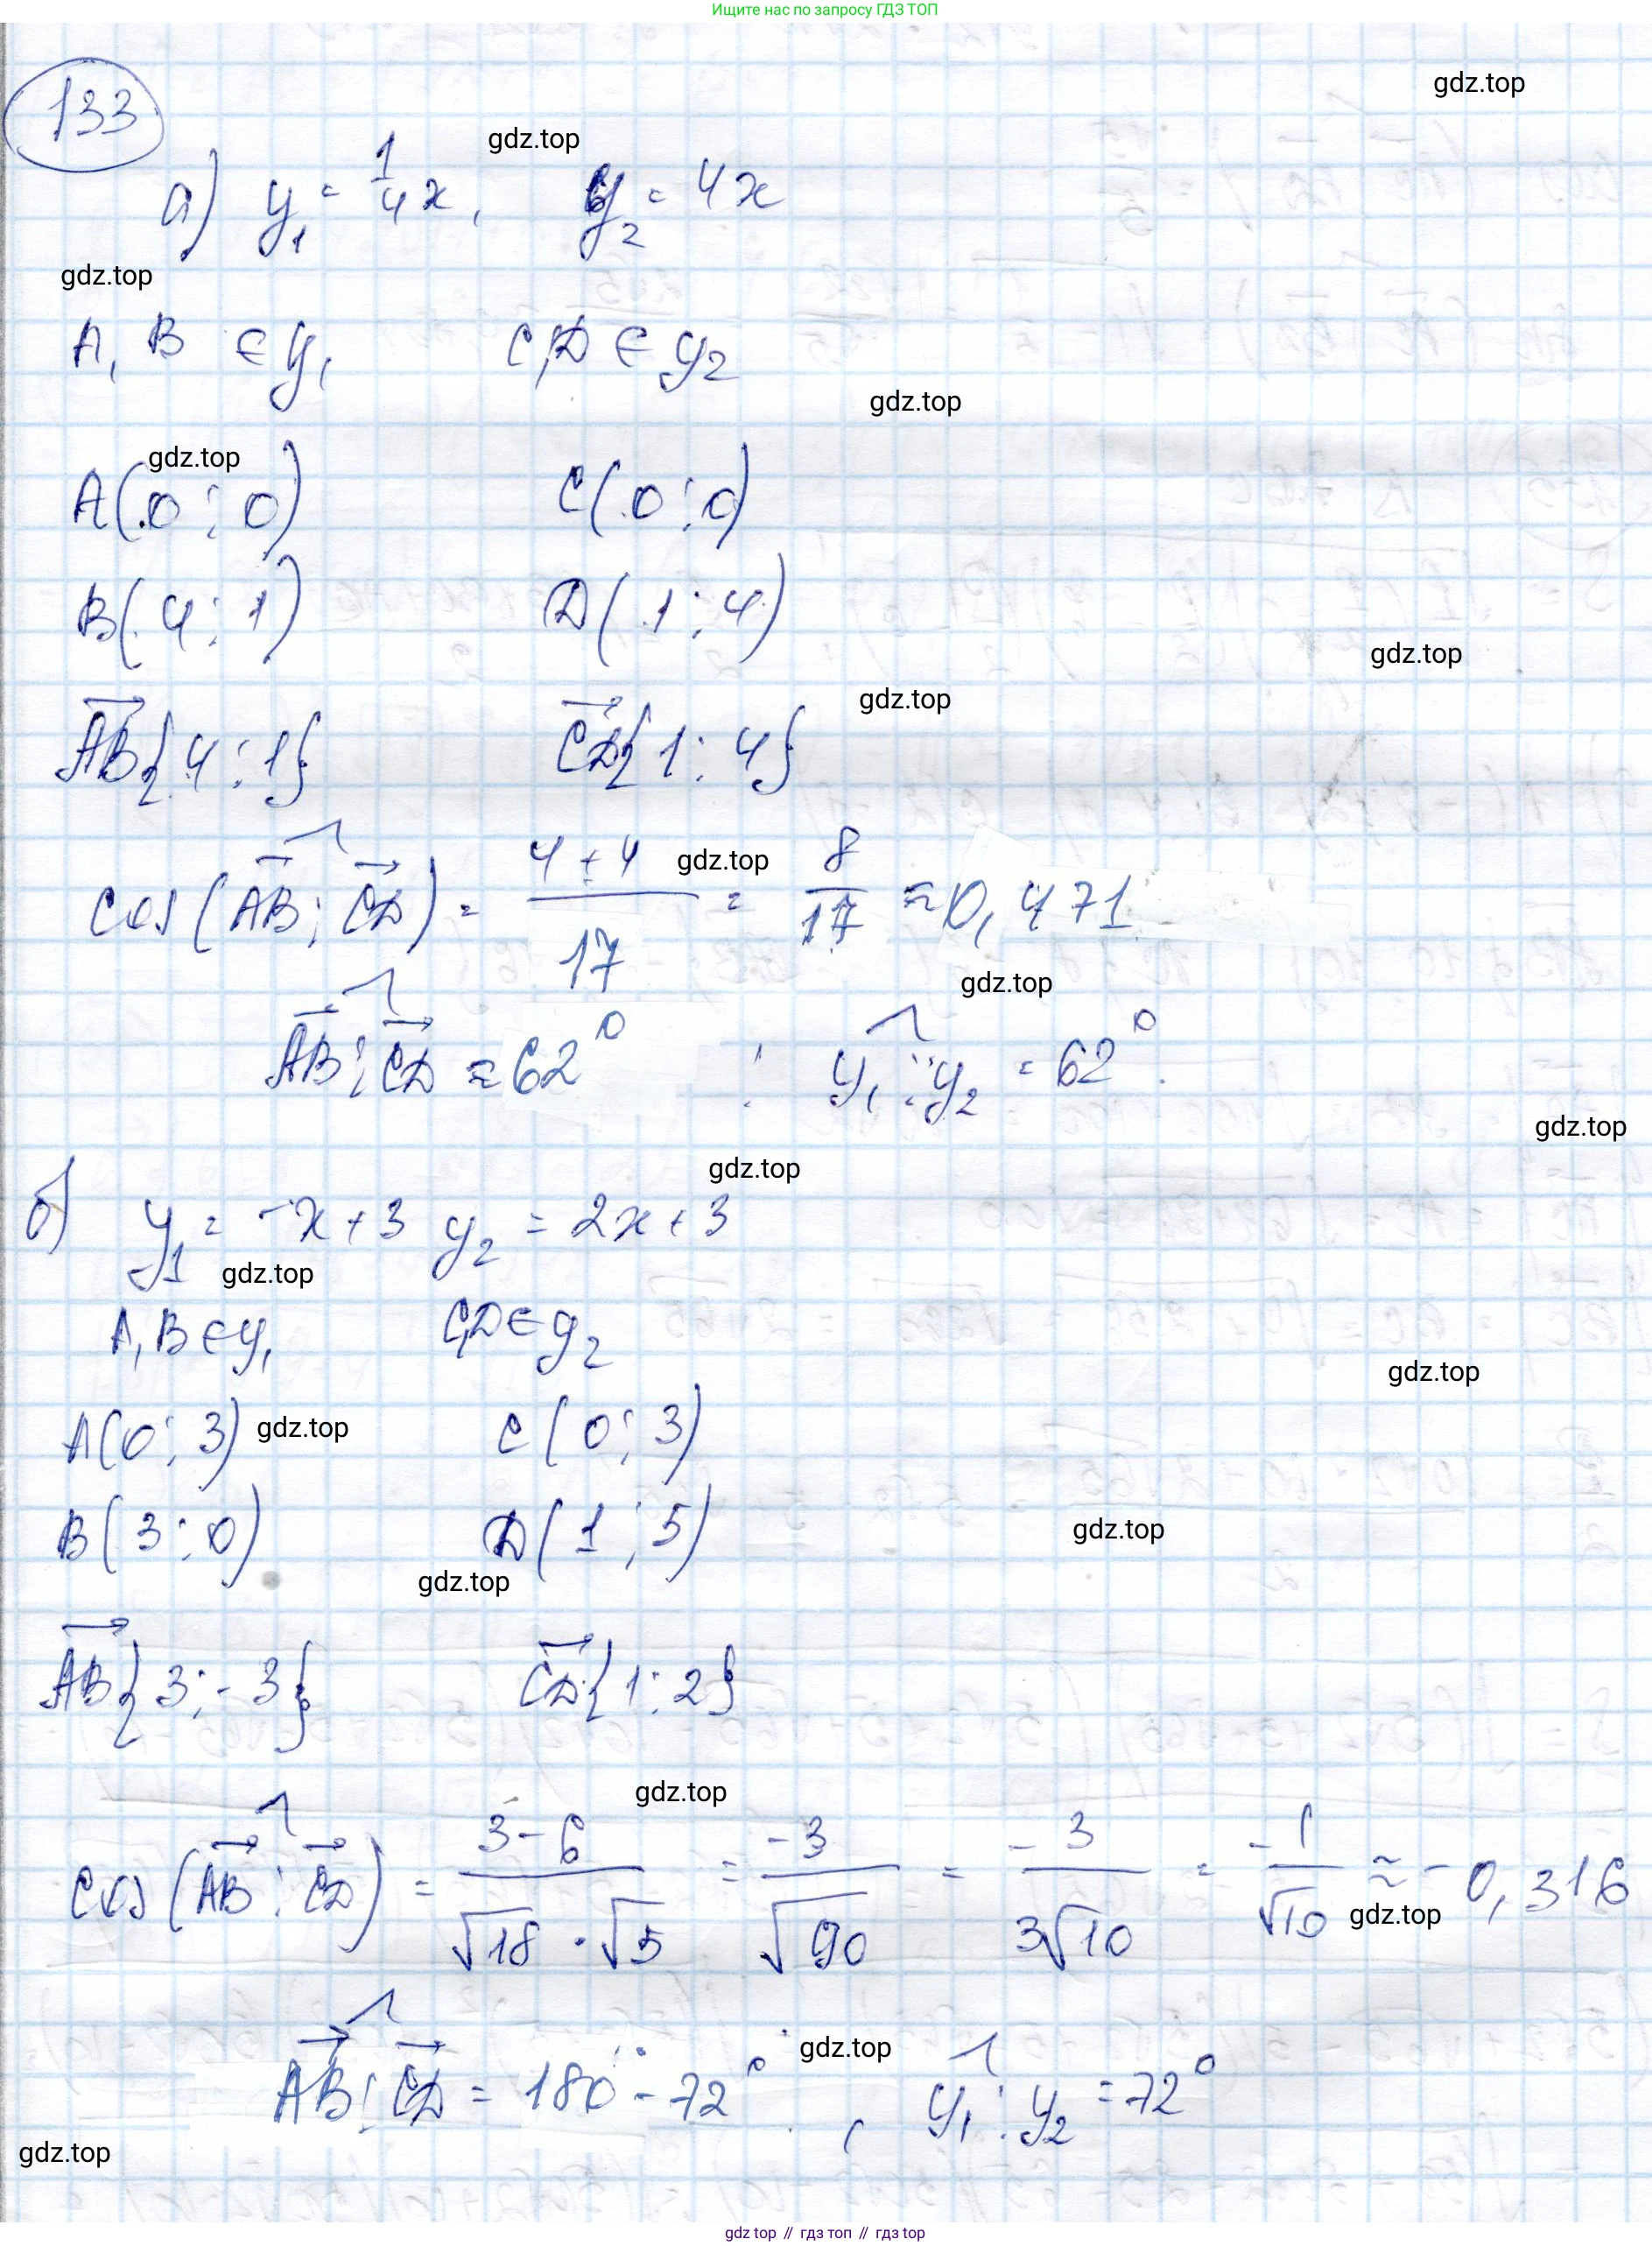 Ищите нас по запросу ГДЗ ТОП
133
gdz.top
gdz.top
а) y₁ = 1/4 x, y₂ = 4x
gdz.top
A, B ∈ y₁ C, D ∈ y₂
gdz.top
gdz.top
A(0; 0) C(0; 0)
B(4; 1) D(1; 4)
gdz.top
gdz.top
AB{4; 1} CD{1; 4}
gdz.top
cos(AB; CD) = (4 + 4)/17 = 8/17 ≈ 0,471
gdz.top
AB; CD ≈ 62°; y₁; y₂ = 62°.
gdz.top
gdz.top
б) y₁ = -x + 3 y₂ = 2x + 3
gdz.top
A, B ∈ y₁ C, D ∈ y₂
gdz.top
A(0; 3) C(0; 3)
gdz.top
B(3; 0) D(1; 5)
gdz.top
gdz.top
AB{3; -3} CD{1; 2}
gdz.top
cos(AB; CD) = (3 - 6)/(√18 · √5) = -3/√90 = -3/(3√10) = -1/√10 ≈ -0,316
gdz.top
gdz.top
AB; CD = 180° - 72°, y₁; y₂ = 72°
gdz.top
gdz top // гдз топ // гдз top